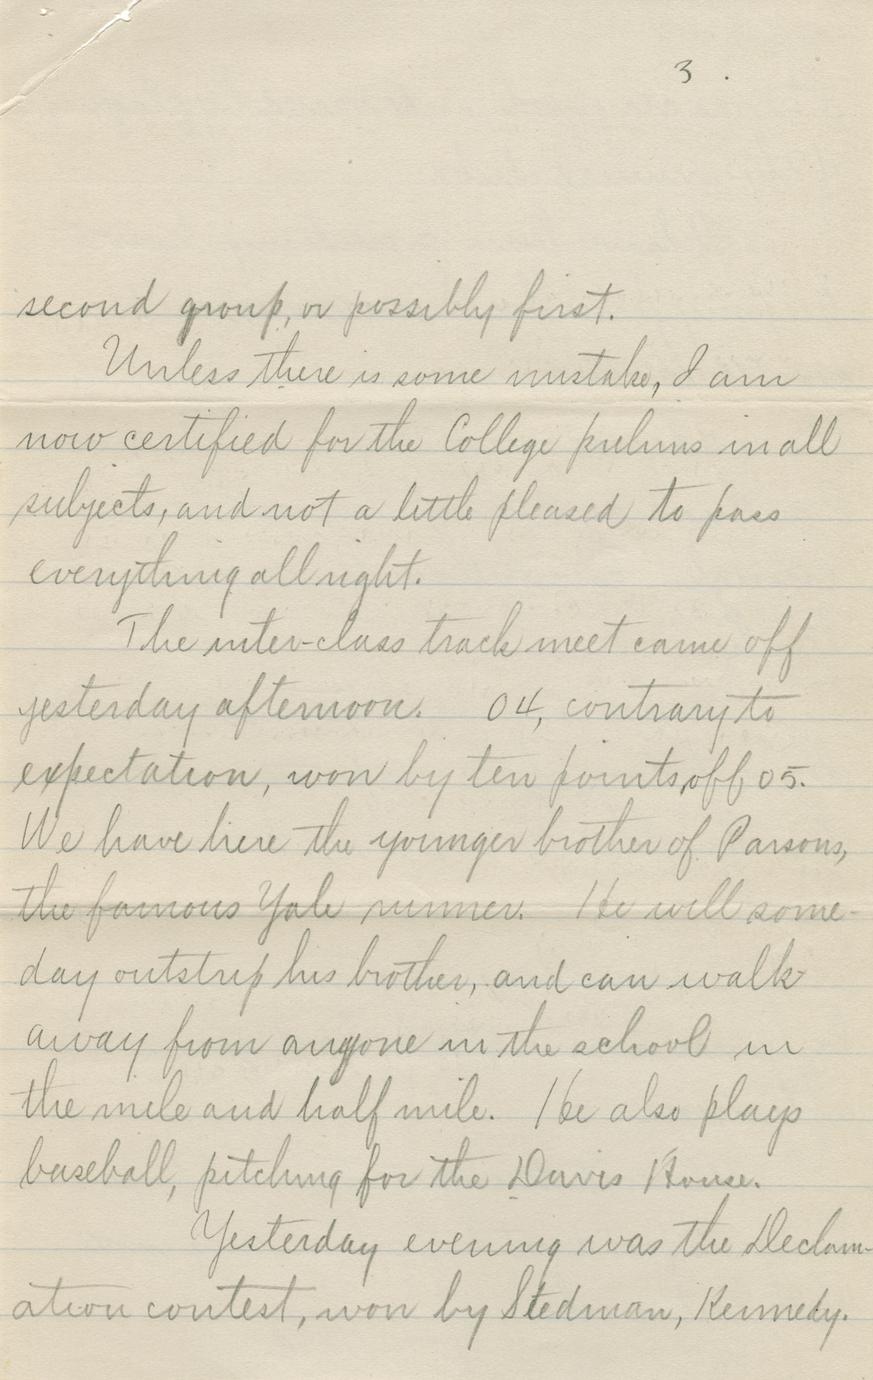 3.
second group, or possibly first.
Unless there is some mistake, I am
now certified for the College prelims in all
subjects, and not a little pleased to pass
everything all right.
The inter-class track meet came off
yesterday afternoon. 04, contrary to
expectation, won by ten points, off 05.
We have here the younger brother of Parsons,
the famous Yale runner. He will some-
day outstrip his brother, and can walk
away from anyone in the school in
the mile and half mile. He also plays
baseball, pitching for the Davis House.
Yesterday evening was the Declam-
ation contest, won by Stedman, Kennedy.